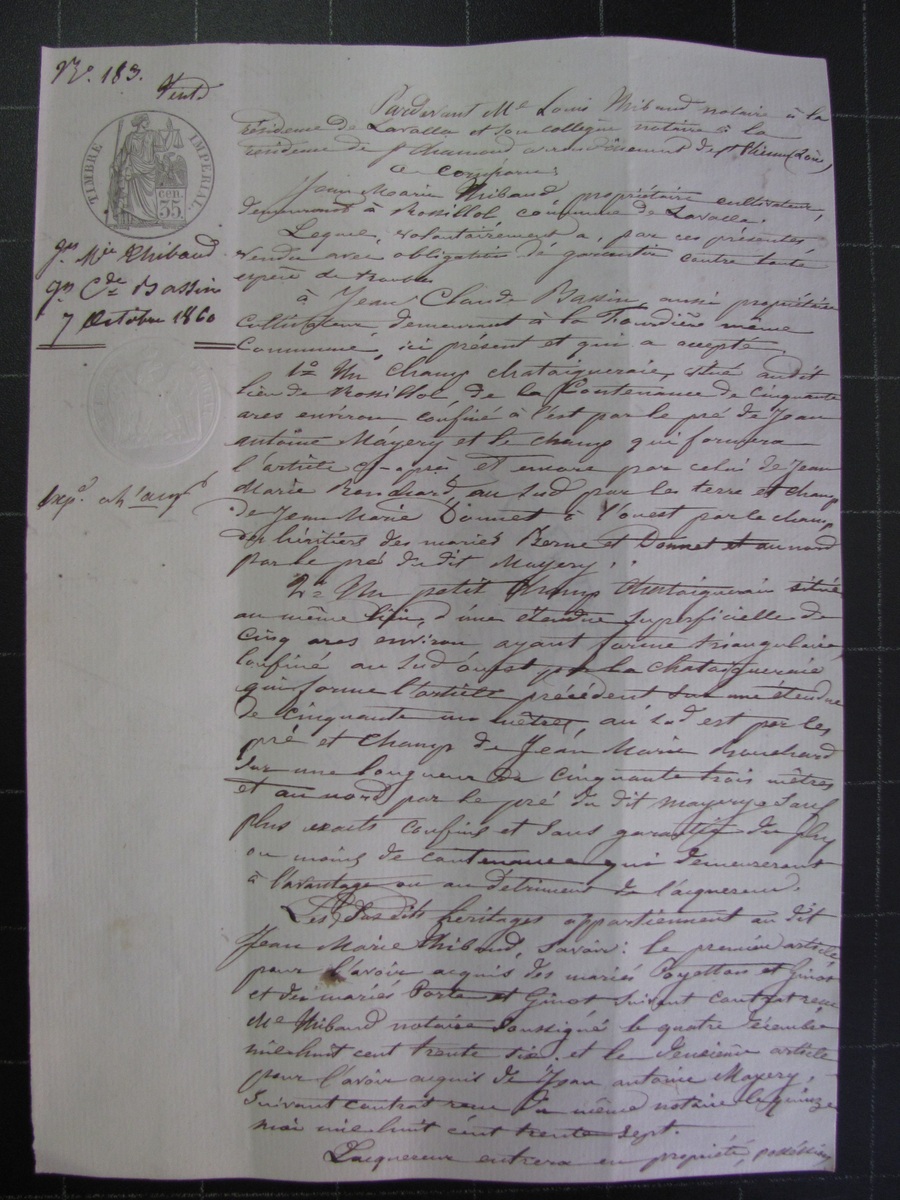 N°. 183.
Vente
TIMBRE IMPERIAL
CEN.
35
jn Mie Thibaud
jn Cde Bassin
7 Octobre 1860
Pardevant Me Louis Thibaud notaire à la
résidence de Lavalla et son collègue notaire à la
résidence de St Chamond arrondissement de St Etienne (Loire)
a comparu
Jean Marie Thibaud, propriétaire cultivateur,
demeurant à Rossillol, commune de Lavalla.
Lequel, volontairement a, par ces présentes
vendu avec obligation de garantir contre toute
espèce de troubles
à Jean Claude Bassin, aussi propriétaire
cultivateur, demeurant à la Fourdière même
commune, ici présent et qui a accepté,
1° Un champ chataigneraie, situé audit
lieu de Rossillol, de la Contenance de cinquante
ares environ confiné à l'est par le pré de Jean
antoine Mayery et le champ qui formera
l'article ci-après, et encore par celui de Jean
Marie Bonchard, au sud par les terre et champ
de Jean Marie Donnet à l'ouest par le champ
des héritiers des mariés Berne et Donnet et au nord
par le pré du dit Mayery.
2° Un petit Champ Chataigneraie situé
au même lieu, d'une étendue superficielle de
cinq ares environ ayant forme triangulaire,
confiné au sud ouest par la chataigneraie
qui forme l'article précédent sur une étendue
de cinquante un mètres, au sud est par les
pré et champ de Jean Marie Bouchard
sur une longueur de cinquante trois mètres
et au nord par le pré du dit mayery. Sauf
plus exacts confins et sans garantie du plus
ou moins de contenance qui demeureront
à l'avantage ou au détriment de l'acquereur.
Les susdits héritages appartiennent au dit
Jean Marie Thibaud, savoir: le premier article
pour l'avoir acquis des mariés et Ginot
et des mariés Porte et Ginot suivant contrat reçu
Me Thibaud notaire soussigné le quatre décembre
mil huit cent trente six. et le deuxième article
pour l'avoir acquis de Jean antoine Mayery,
suivant contrat reçu du même notaire le quinze
mai mil huit cent trente sept.
L'acquereur entrera en propriété, possession